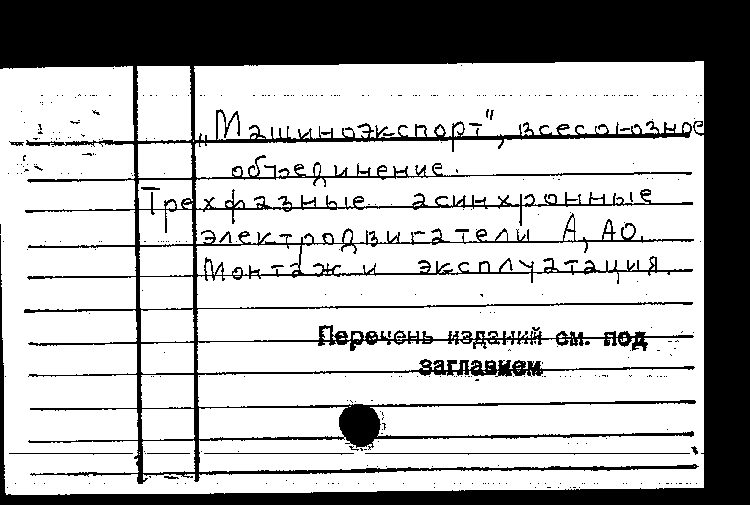 „Машиноэкспорт", всесоюзное
объединение.
Трехфазные асинхронные
электродвигатели А, АО.
Монтаж и эксплуатация.
Перечень изданий см. под
заглавием